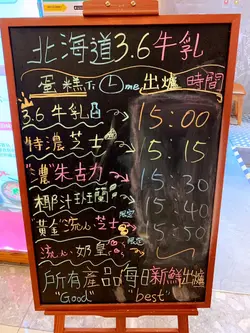 北海道3.6牛乳
蛋糕Time出爐時間
3.6牛乳 → 15:00
特濃芝士 → 15.15
濃朱古力 → 15:30
椰汁班蘭 → 15:40
限定
黃金流心芝士 → 15:50
流心奶皇 限定
所有產品每日新鮮出爐
"Good" "best"